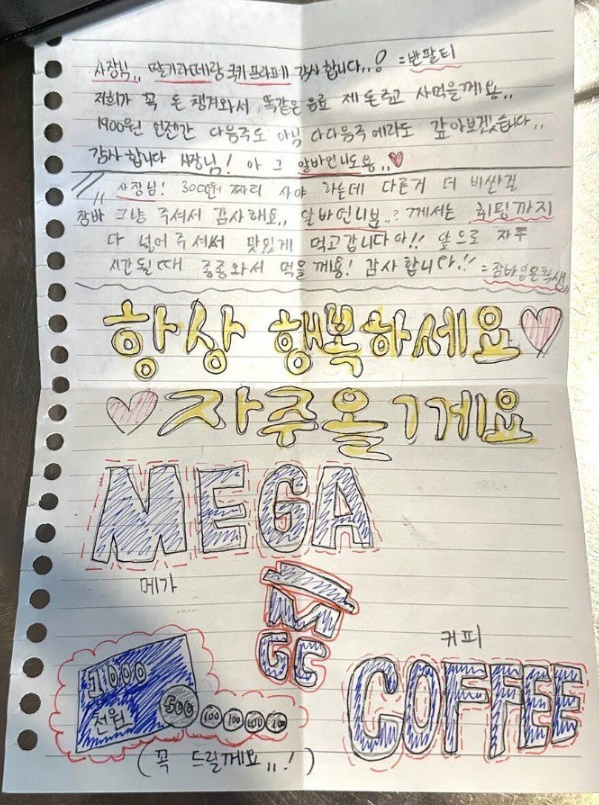 사장님,, 딸기라떼랑 쿠키프라페 감사합니다,,! =반팔티
저희가 꼭 돈 챙겨와서 똑같은 음료 제 돈주고 사먹을께용,,
1900원 언젠간 다음주도 아님 다다음주에라도 갚아보겠습니다,,
감사합니다 사장님! 아 그 알바언니도용,,♥
사장님! 3000원 짜리 사야 하는데 다른거 더 비싼걸
잠바 그냥 주셔서 감사해요,, 알바언니분,,? 께서는 휘핑까지
다 넣어주셔서 맛있게 먹고갑니다아!! 앞으로 자주
시간될때 종종와서 먹을께용! 감사합니다!! =잠바입은학생,,
항상 행복하세요♡
♡자주올게요
MEGA
메가
M
GC
커피
COFFEE
1000
천원
500 100 100 100 100
(꼭 드릴께요,,!)